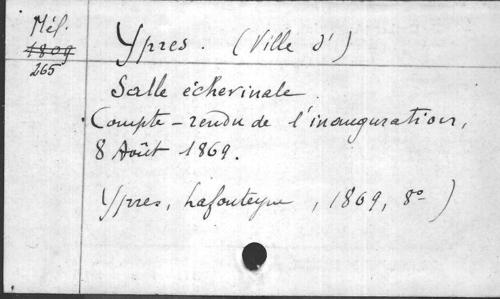 Mél.
1809
265
Ypres. (Ville d')
Salle échevinale.
Compte-rendu de l'inauguration,
8 Août 1869.
Ypres, Lafonteyne, 1869, 8º)